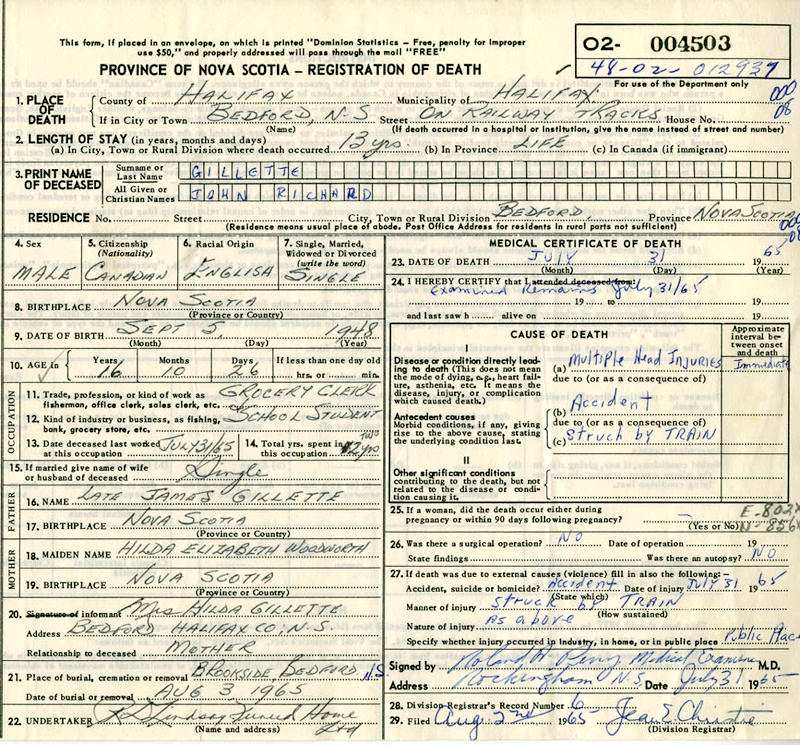 This form, if placed in an envelope, on which is printed "Dominion Statistics – Free, penalty for improper
use $50," and properly addressed will pass through the mail "FREE"
PROVINCE OF NOVA SCOTIA – REGISTRATION OF DEATH
02- 004503
48-02-012937
For use of the Department only
000
08
1. PLACE OF DEATH
County of HALIFAX Municipality of HALIFAX
If in City or Town BEDFORD, N.S Street ON RAILWAY TRACKS House No.
(Name) (If death occurred in a hospital or institution, give the name instead of street and number)
2. LENGTH OF STAY (in years, months and days)
(a) In City, Town or Rural Division where death occurred 13 yrs. (b) In Province LIFE (c) In Canada (if immigrant)
3. PRINT NAME OF DECEASED
Surname or Last Name GILLETTE
All Given or Christian Names JOHN RICHARD
RESIDENCE No. Street City, Town or Rural Division BEDFORD Province NOVA SCOTIA
(Residence means usual place of abode. Post Office Address for residents in rural parts not sufficient)
000
08
4. Sex
MALE
5. Citizenship (Nationality)
CANADIAN
6. Racial Origin
ENGLISH
7. Single, Married, Widowed or Divorced (write the word)
SINGLE
8. BIRTHPLACE NOVA SCOTIA
(Province or Country)
9. DATE OF BIRTH SEPT 5, 1948
(Month) (Day) (Year)
10. AGE in Years Months Days If less than one day old
16 10 26 hrs. or min.
OCCUPATION
11. Trade, profession, or kind of work as fisherman, office clerk, sales clerk, etc. GROCERY CLERK
12. Kind of industry or business, as fishing, bank, grocery store, etc. SCHOOL STUDENT
13. Date deceased last worked at this occupation JULY 31/65
14. Total yrs. spent in this occupation TWO 2 yrs
15. If married give name of wife or husband of deceased Single
FATHER
16. NAME LATE JAMES GILLETTE
17. BIRTHPLACE NOVA SCOTIA
(Province or Country)
MOTHER
18. MAIDEN NAME HILDA ELIZABETH WOODWORTH
19. BIRTHPLACE NOVA SCOTIA
(Province or Country)
20. Signature of informant MRS HILDA GILLETTE
Address BEDFORD HALIFAX CO; N.S.
Relationship to deceased MOTHER
21. Place of burial, cremation or removal BROOKSIDE, BEDFORD N.S
Date of burial or removal AUG 3, 1965
22. UNDERTAKER Lindsay Funeral Home Ltd
(Name and address)
MEDICAL CERTIFICATE OF DEATH
23. DATE OF DEATH JULY 31 1965
(Month) (Day) (Year)
24. I HEREBY CERTIFY that I attended deceased from:
Examined Remains July 31/65
19 to 19
and last saw h alive on 19
CAUSE OF DEATH
Approximate interval between onset and death
I
Disease or condition directly leading to death (This does not mean the mode of dying, e.g., heart failure, asthenia, etc. It means the disease, injury, or complication which caused death.)
(a) MULTIPLE HEAD INJURIES Immediate
due to (or as a consequence of)
Antecedent causes
Morbid conditions, if any, giving rise to the above cause, stating the underlying condition last.
(b) Accident
due to (or as a consequence of)
(c) STRUCK by TRAIN
II
Other significant conditions contributing to the death, but not related to the disease or condition causing it.
25. If a woman, did the death occur either during pregnancy or within 90 days following pregnancy? –
(Yes or No)
E-802
N-856
26. Was there a surgical operation? NO Date of operation 19
State findings Was there an autopsy? NO
27. If death was due to external causes (violence) fill in also the following –
Accident, suicide or homicide? Accident Date of injury JULY 31 1965
(State which)
Manner of injury STRUCK by TRAIN
(How sustained)
Nature of injury as above
Specify whether injury occurred in industry, in home, or in public place Public Place
Signed by Roland H Perry Medical Examiner M.D.
Address Rockingham N.S. Date July 31 1965
28. Division Registrar's Record Number 6
29. Filed Aug 2nd 1965 Jean E. Christie
(Division Registrar)